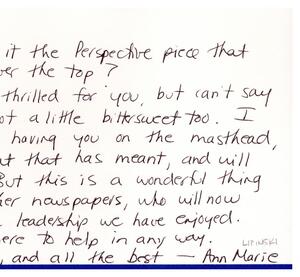 it the Perspective piece that
ver the top?
thrilled for you, but can't say
ot a little bittersweet too. I
having you on the masthead,
at that has meant, and will
But this is a wonderful thing
her newspapers, who will now
leadership we have enjoyed.
ere to help in any way.
LIPINSKI
, and all the best — Ann Marie